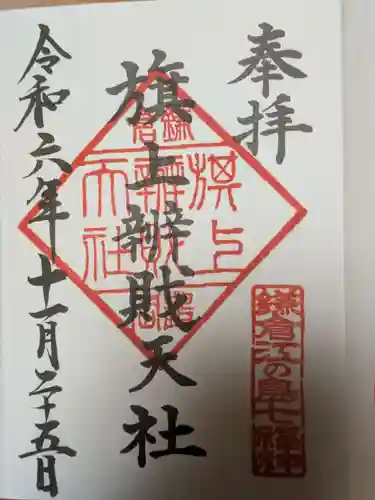 奉拝
旗上辨財天社
令和六年十一月二十五日
鎌倉
旗上
辨財
天社
鎌倉江の島七福神